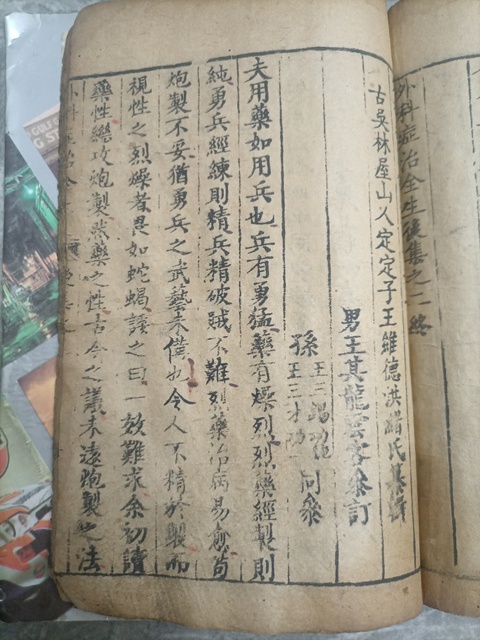 外科症治全生後集之二終
古吳林屋山人定定子王維德洪緒氏纂輯
男王其龍雲客叅訂
孫 王三錫
王三才 同叅
夫用藥如用兵也兵有勇猛藥有燥烈烈藥經製則
純勇兵經練則精兵精破賊不難烈藥治病易愈苟
炮製不妥猶勇兵之武藝未備也今人不精於製而
視性之烈燥者畏如蛇蝎議之曰一效難求余初讀
藥性繼攻炮製然藥之性古今之議未遠炮製之法
外科